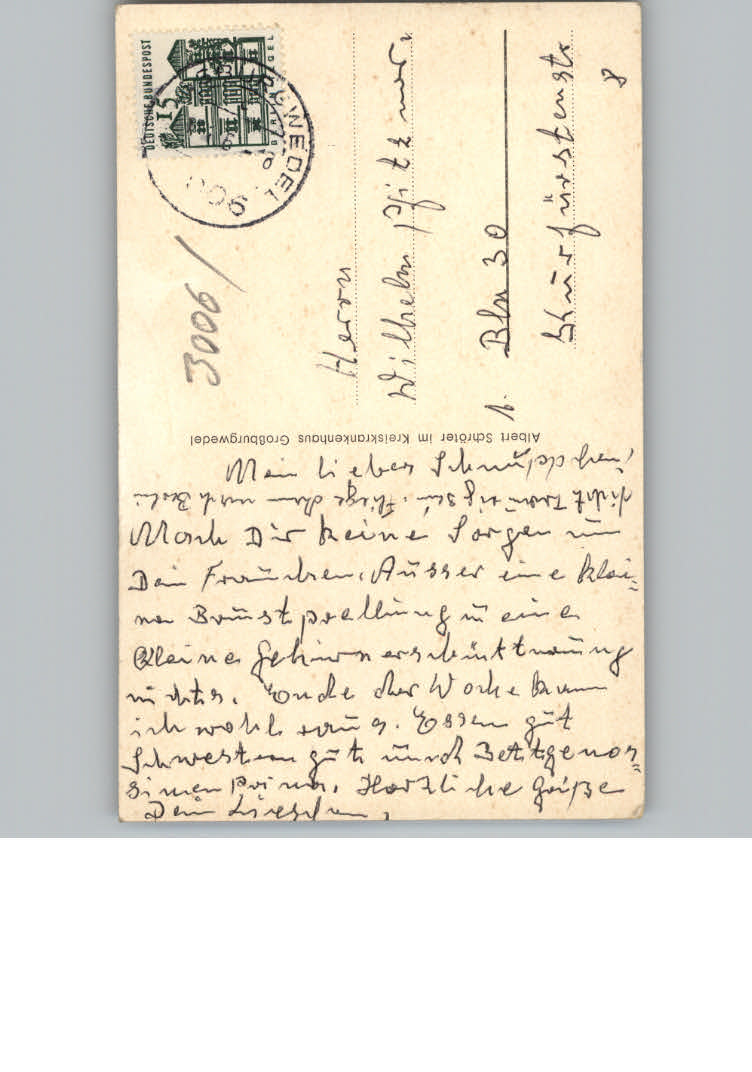 DEUTSCHE BUNDESPOST
15
BERLIN
TEGEL
WEDEL
3006
Herrn
Wilhelm Pfitzner
1. Bln 30
Kurfürstenstr
8
Albert Schröter im Kreiskrankenhaus Großburgwedel
Mein lieber
nicht traurig sein, fliege dann nach Berlin
Mach Dir keine Sorgen um
Dein Frauchen. Ausser eine klei-
ne Brustprellung u eine
kleine Gehirnerschüttrung
nichts. Ende der Woche kann
ich wohl raus. Essen gut
Schwestern gut und Bettgenos-
sinen prima. Herzliche Grüße
Dein